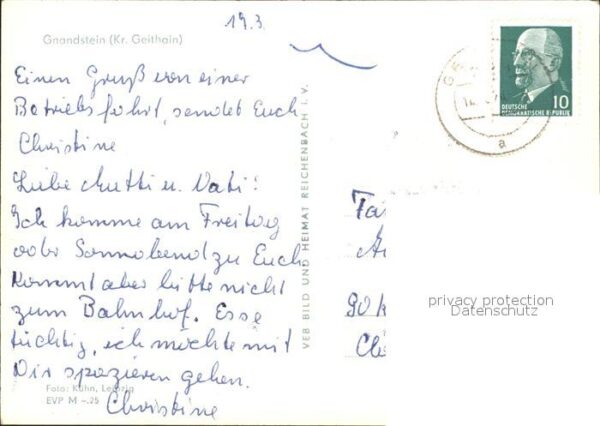 19.3.
Gnandstein (Kr. Geithain)
Einen Gruß von einer
Betriebsfahrt, sendet Euch
Christine
Liebe Mutti u. Vati!
Ich komme am Freitag
oder Sonnabend zu Euch
Kommt aber bitte nicht
zum Bahnhof. Esse
tüchtig, ich möchte mit
Dir spazieren gehen.
Christine
Foto: Kühn, Leipzig
EVP M -.25
VEB BILD UND HEIMAT REICHENBACH I. V.
DEUTSCHE
DEMOKRATISCHE REPUBLIK
10
a
90
privacy protection
Datenschutz